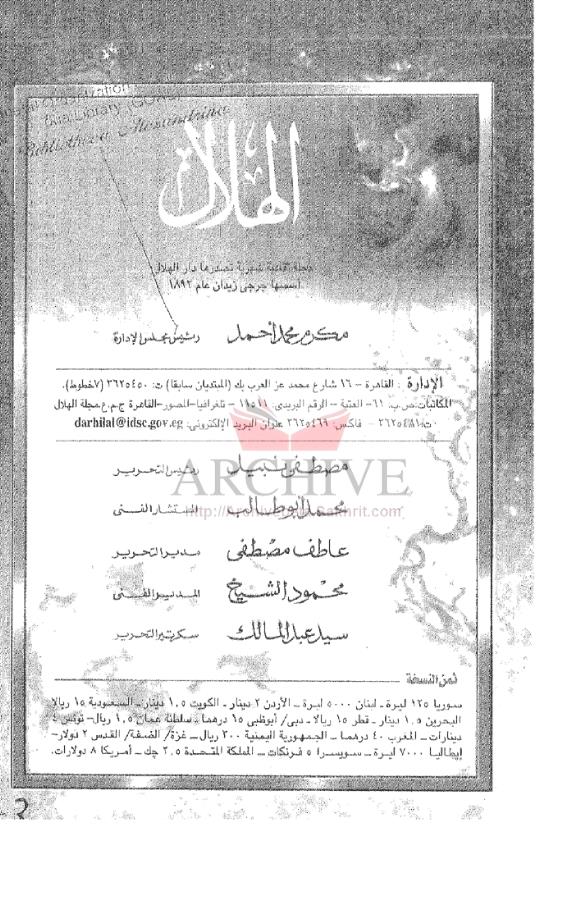 Bibliotheca Alexandrina
الهلال
مجلة ثقافية شهرية تصدرها دار الهلال
أسسها جرجى زيدان عام ١٨٩٢
مكرم محمد أحمد رئيس مجلس الإدارة
الإدارة : القاهرة – ١٦ شارع محمد عز العرب بك (المبتديان سابقا) ت: ٣٦٢٥٤٥٠ (٧ خطوط).
المكاتبات: ص.ب: ٦١– العتبة – الرقم البريدى: ١١٥١١ – تلغرافيا–المصور–القاهرة ج.م.ع. مجلة الهلال
ت: ٣٦٢٥٤٨١ – فاكس: ٣٦٢٥٤٦٩ عنوان البريد الإلكترونى: darhilal@idsc.gov.eg
مصطفى نبيل رئيس التحرير
ARCHIVE
محمد أبو طالب المستشار الفنى
http://Archivebeta.Sakhrit.com
عاطف مصطفى مدير التحرير
محمود الشيخ المدير الفنى
سيد عبد المالك سكرتير التحرير
ثمن النسخة
سوريا ١٢٥ ليرة – لبنان ٥٠٠٠ ليرة – الأردن ٢ دينار – الكويت ١,٥ دينار – السعودية ١٥ ريالا
البحرين ١,٥ دينار – قطر ١٥ ريالا – دبى/ أبوظبى ١٥ درهما – سلطنة عمان ١,٥ ريال – تونس ٤
دينارات – المغرب ٤٠ درهما – الجمهورية اليمنية ٣٠٠ ريال – غزة/ الضفة/ القدس ٢ دولار –
إيطاليا ٧٠٠٠ ليرة – سويسرا ٥ فرنكات – المملكة المتحدة ٢,٥ جك – أمريكا ٨ دولارات.